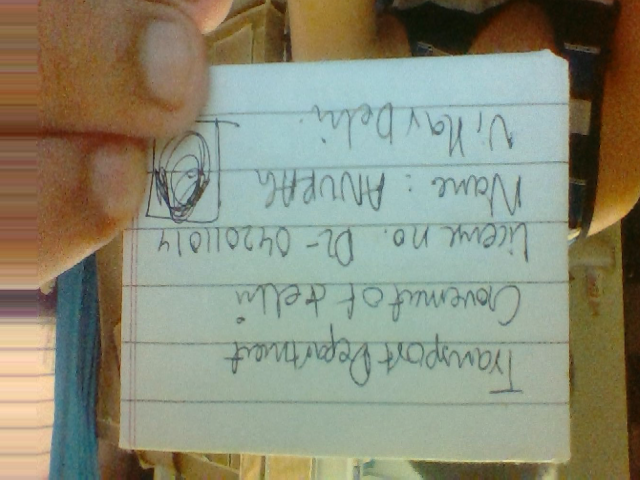 Transport Department
Governmet of delhi
License no. DL-042011014
Name : ANURAG
Delhi